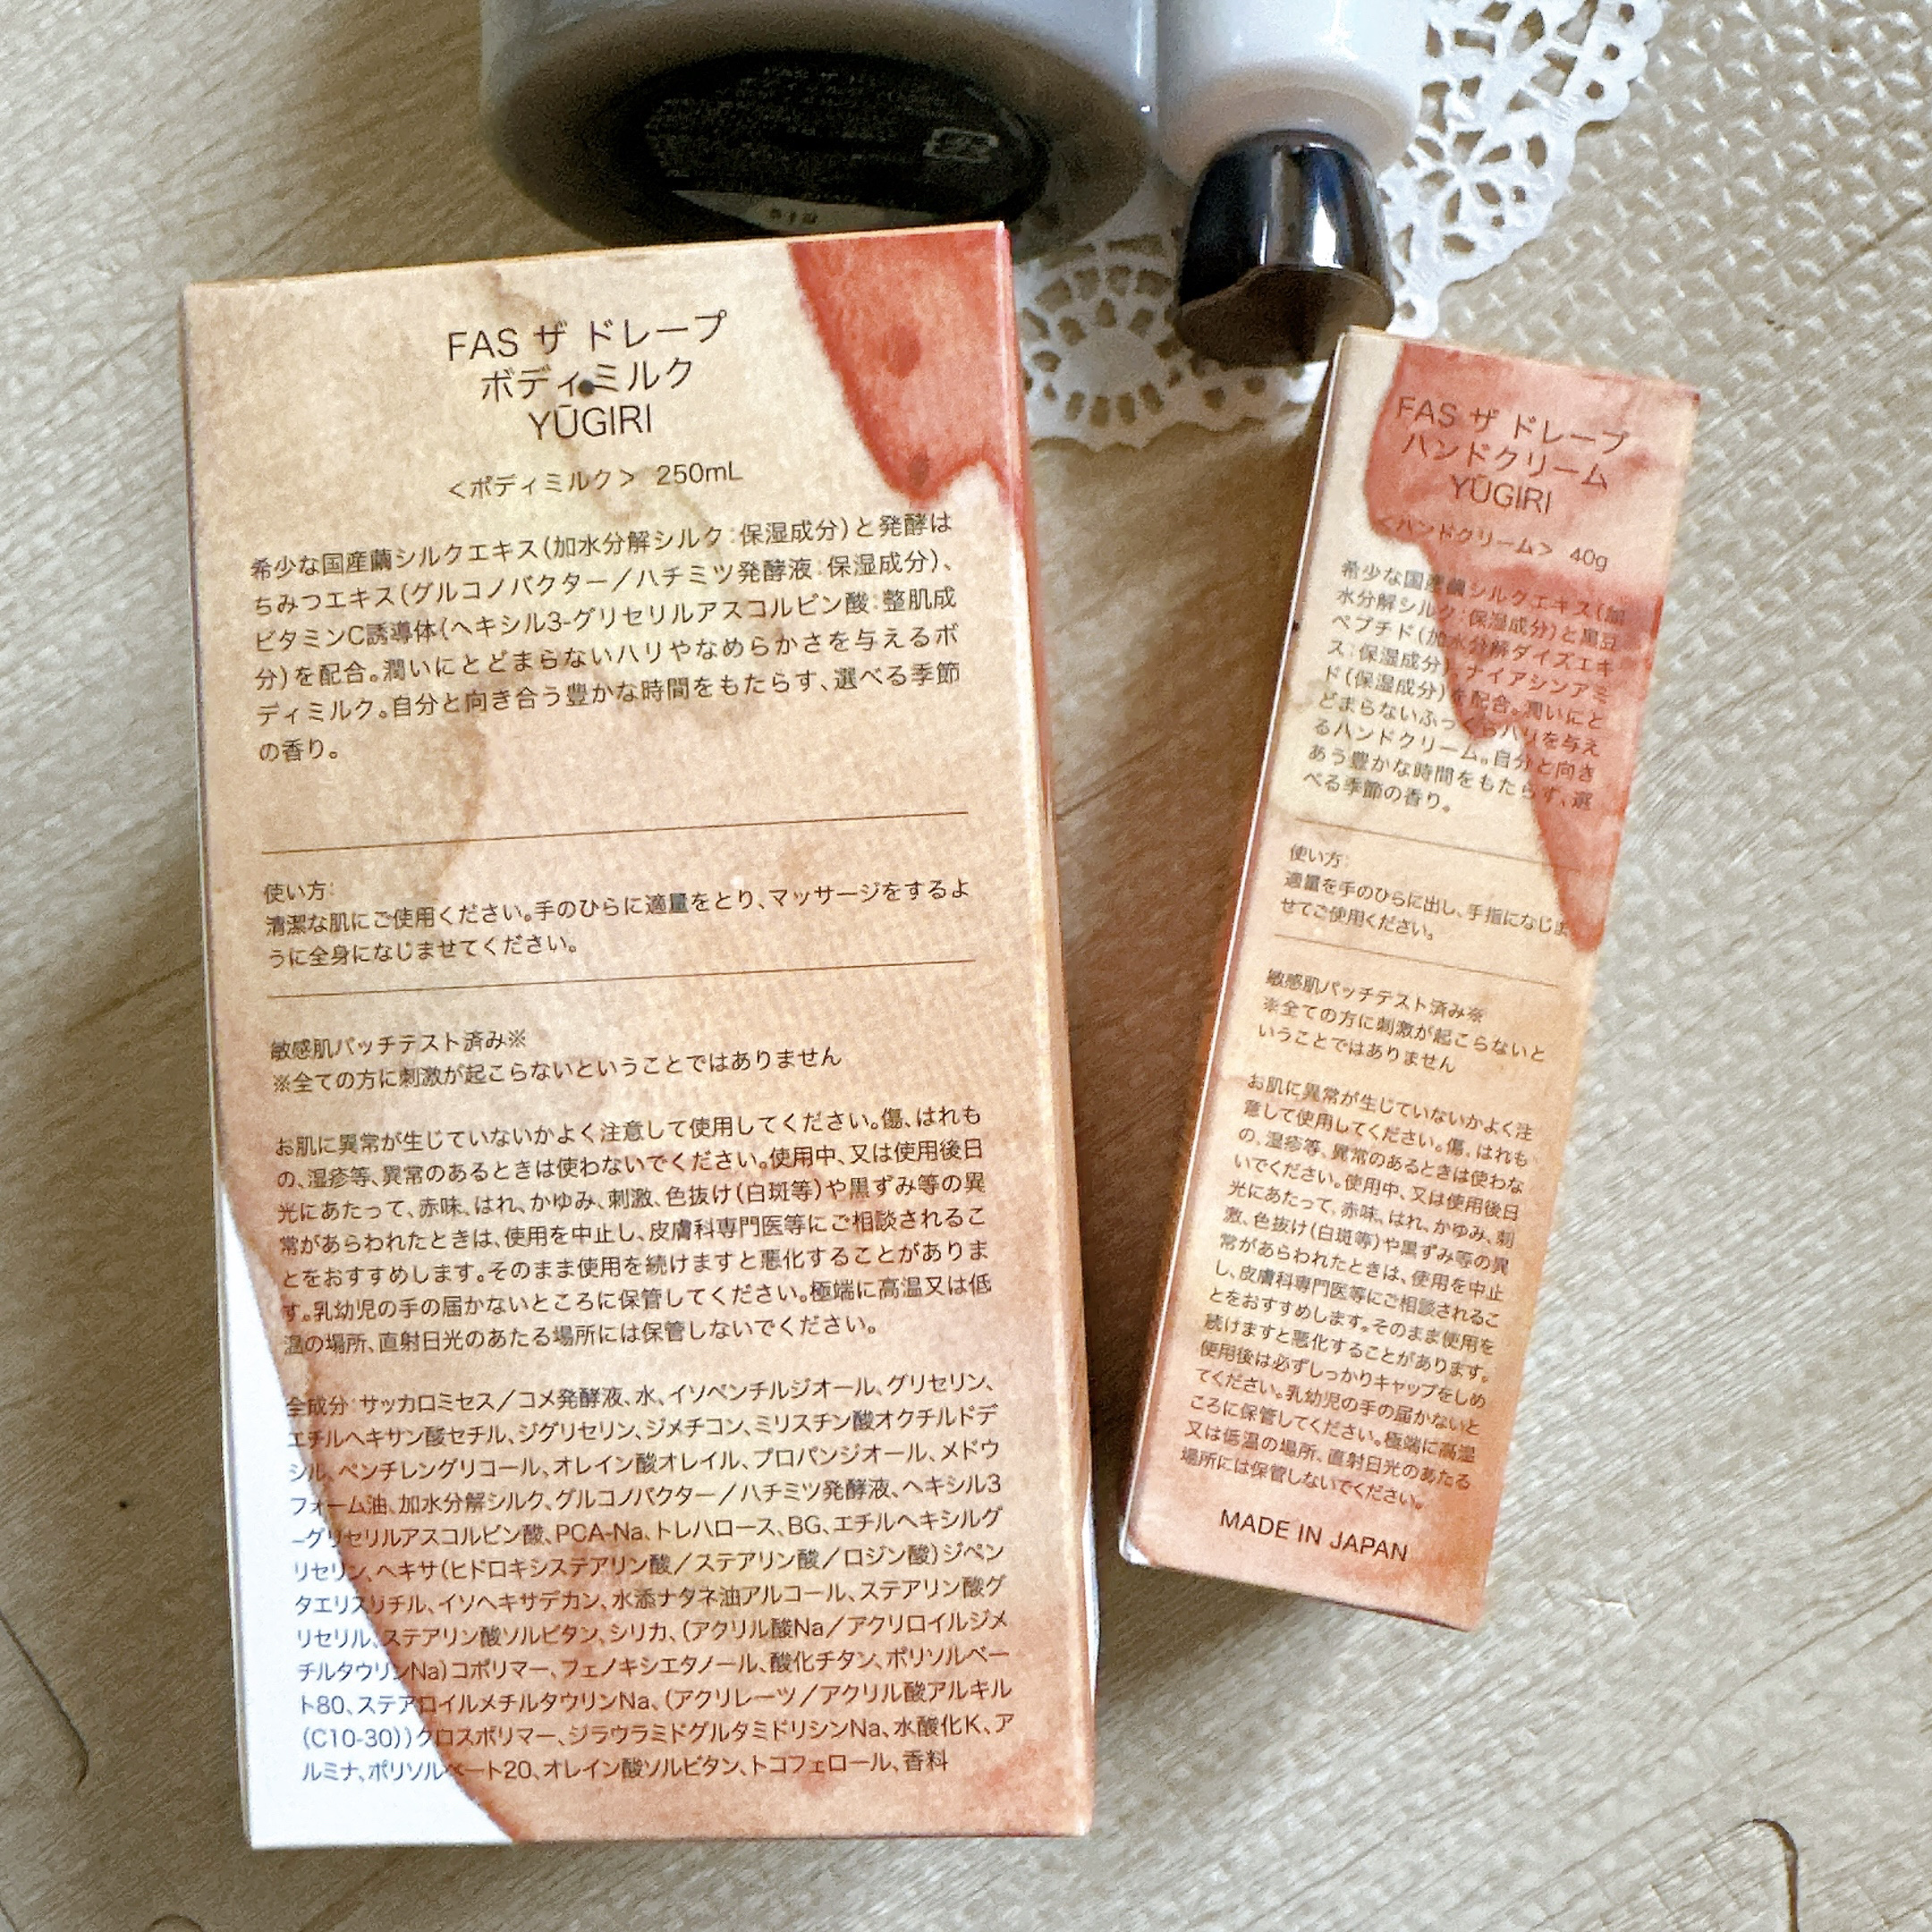 FAS ザ ドレープ
ボディミルク
YŪGIRI
＜ボディミルク＞ 250mL
希少な国産繭シルクエキス(加水分解シルク:保湿成分)と発酵は
ちみつエキス(グルコノバクター/ハチミツ発酵液:保湿成分)、
ビタミンC誘導体(ヘキシル3-グリセリルアスコルビン酸:整肌成
分)を配合。潤いにとどまらないハリやなめらかさを与えるボ
ディミルク。自分と向き合う豊かな時間をもたらす、選べる季節
の香り。
使い方:
清潔な肌にご使用ください。手のひらに適量をとり、マッサージをするよ
うに全身になじませてください。
敏感肌パッチテスト済み※
※全ての方に刺激が起こらないということではありません
お肌に異常が生じていないかよく注意して使用してください。傷、はれも
の、湿疹等、異常のあるときは使わないでください。使用中、又は使用後日
光にあたって、赤味、はれ、かゆみ、刺激、色抜け(白斑等)や黒ずみ等の異
常があらわれたときは、使用を中止し、皮膚科専門医等にご相談されるこ
とをおすすめします。そのまま使用を続けますと悪化することがありま
す。乳幼児の手の届かないところに保管してください。極端に高温又は低
温の場所、直射日光のあたる場所には保管しないでください。
全成分:サッカロミセス/コメ発酵液、水、イソペンチルジオール、グリセリン、
エチルヘキサン酸セチル、ジグリセリン、ジメチコン、ミリスチン酸オクチルドデ
シル、ペンチレングリコール、オレイン酸オレイル、プロパンジオール、メドウ
フォーム油、加水分解シルク、グルコノバクター/ハチミツ発酵液、ヘキシル3
-グリセリルアスコルビン酸、PCA-Na、トレハロース、BG、エチルヘキシルグ
リセリン、ヘキサ(ヒドロキシステアリン酸/ステアリン酸/ロジン酸)ジペン
タエリスリチル、イソヘキサデカン、水添ナタネ油アルコール、ステアリン酸グ
リセリル、ステアリン酸ソルビタン、シリカ、(アクリル酸Na/アクリロイルジメ
チルタウリンNa)コポリマー、フェノキシエタノール、酸化チタン、ポリソルベー
ト80、ステアロイルメチルタウリンNa、(アクリレーツ/アクリル酸アルキル
(C10-30))クロスポリマー、ジラウラミドグルタミドリシンNa、水酸化K、ア
ルミナ、ポリソルベート20、オレイン酸ソルビタン、トコフェロール、香料
FAS ザ ドレープ
ハンドクリーム
YŪGIRI
＜ハンドクリーム＞ 40g
希少な国産繭シルクエキス(加
水分解シルク:保湿成分)と黒豆
ペプチド(加水分解ダイズエキ
ス:保湿成分)、ナイアシンアミ
ド(保湿成分)を配合。潤いにと
どまらないふっくらハリを与え
るハンドクリーム。自分と向き
あう豊かな時間をもたらす、選
べる季節の香り。
使い方:
適量を手のひらに出し、手指になじま
せてご使用ください。
敏感肌パッチテスト済み※
※全ての方に刺激が起こらないと
いうことではありません
お肌に異常が生じていないかよく注
意して使用してください。傷、はれも
の、湿疹等、異常のあるときは使わな
いでください。使用中、又は使用後日
光にあたって、赤味、はれ、かゆみ、刺
激、色抜け(白斑等)や黒ずみ等の異
常があらわれたときは、使用を中止
し、皮膚科専門医等にご相談されるこ
とをおすすめします。そのまま使用を
続けますと悪化することがあります。
使用後は必ずしっかりキャップをしめ
てください。乳幼児の手の届かないと
ころに保管してください。極端に高温
又は低温の場所、直射日光のあたる
場所には保管しないでください。
MADE IN JAPAN